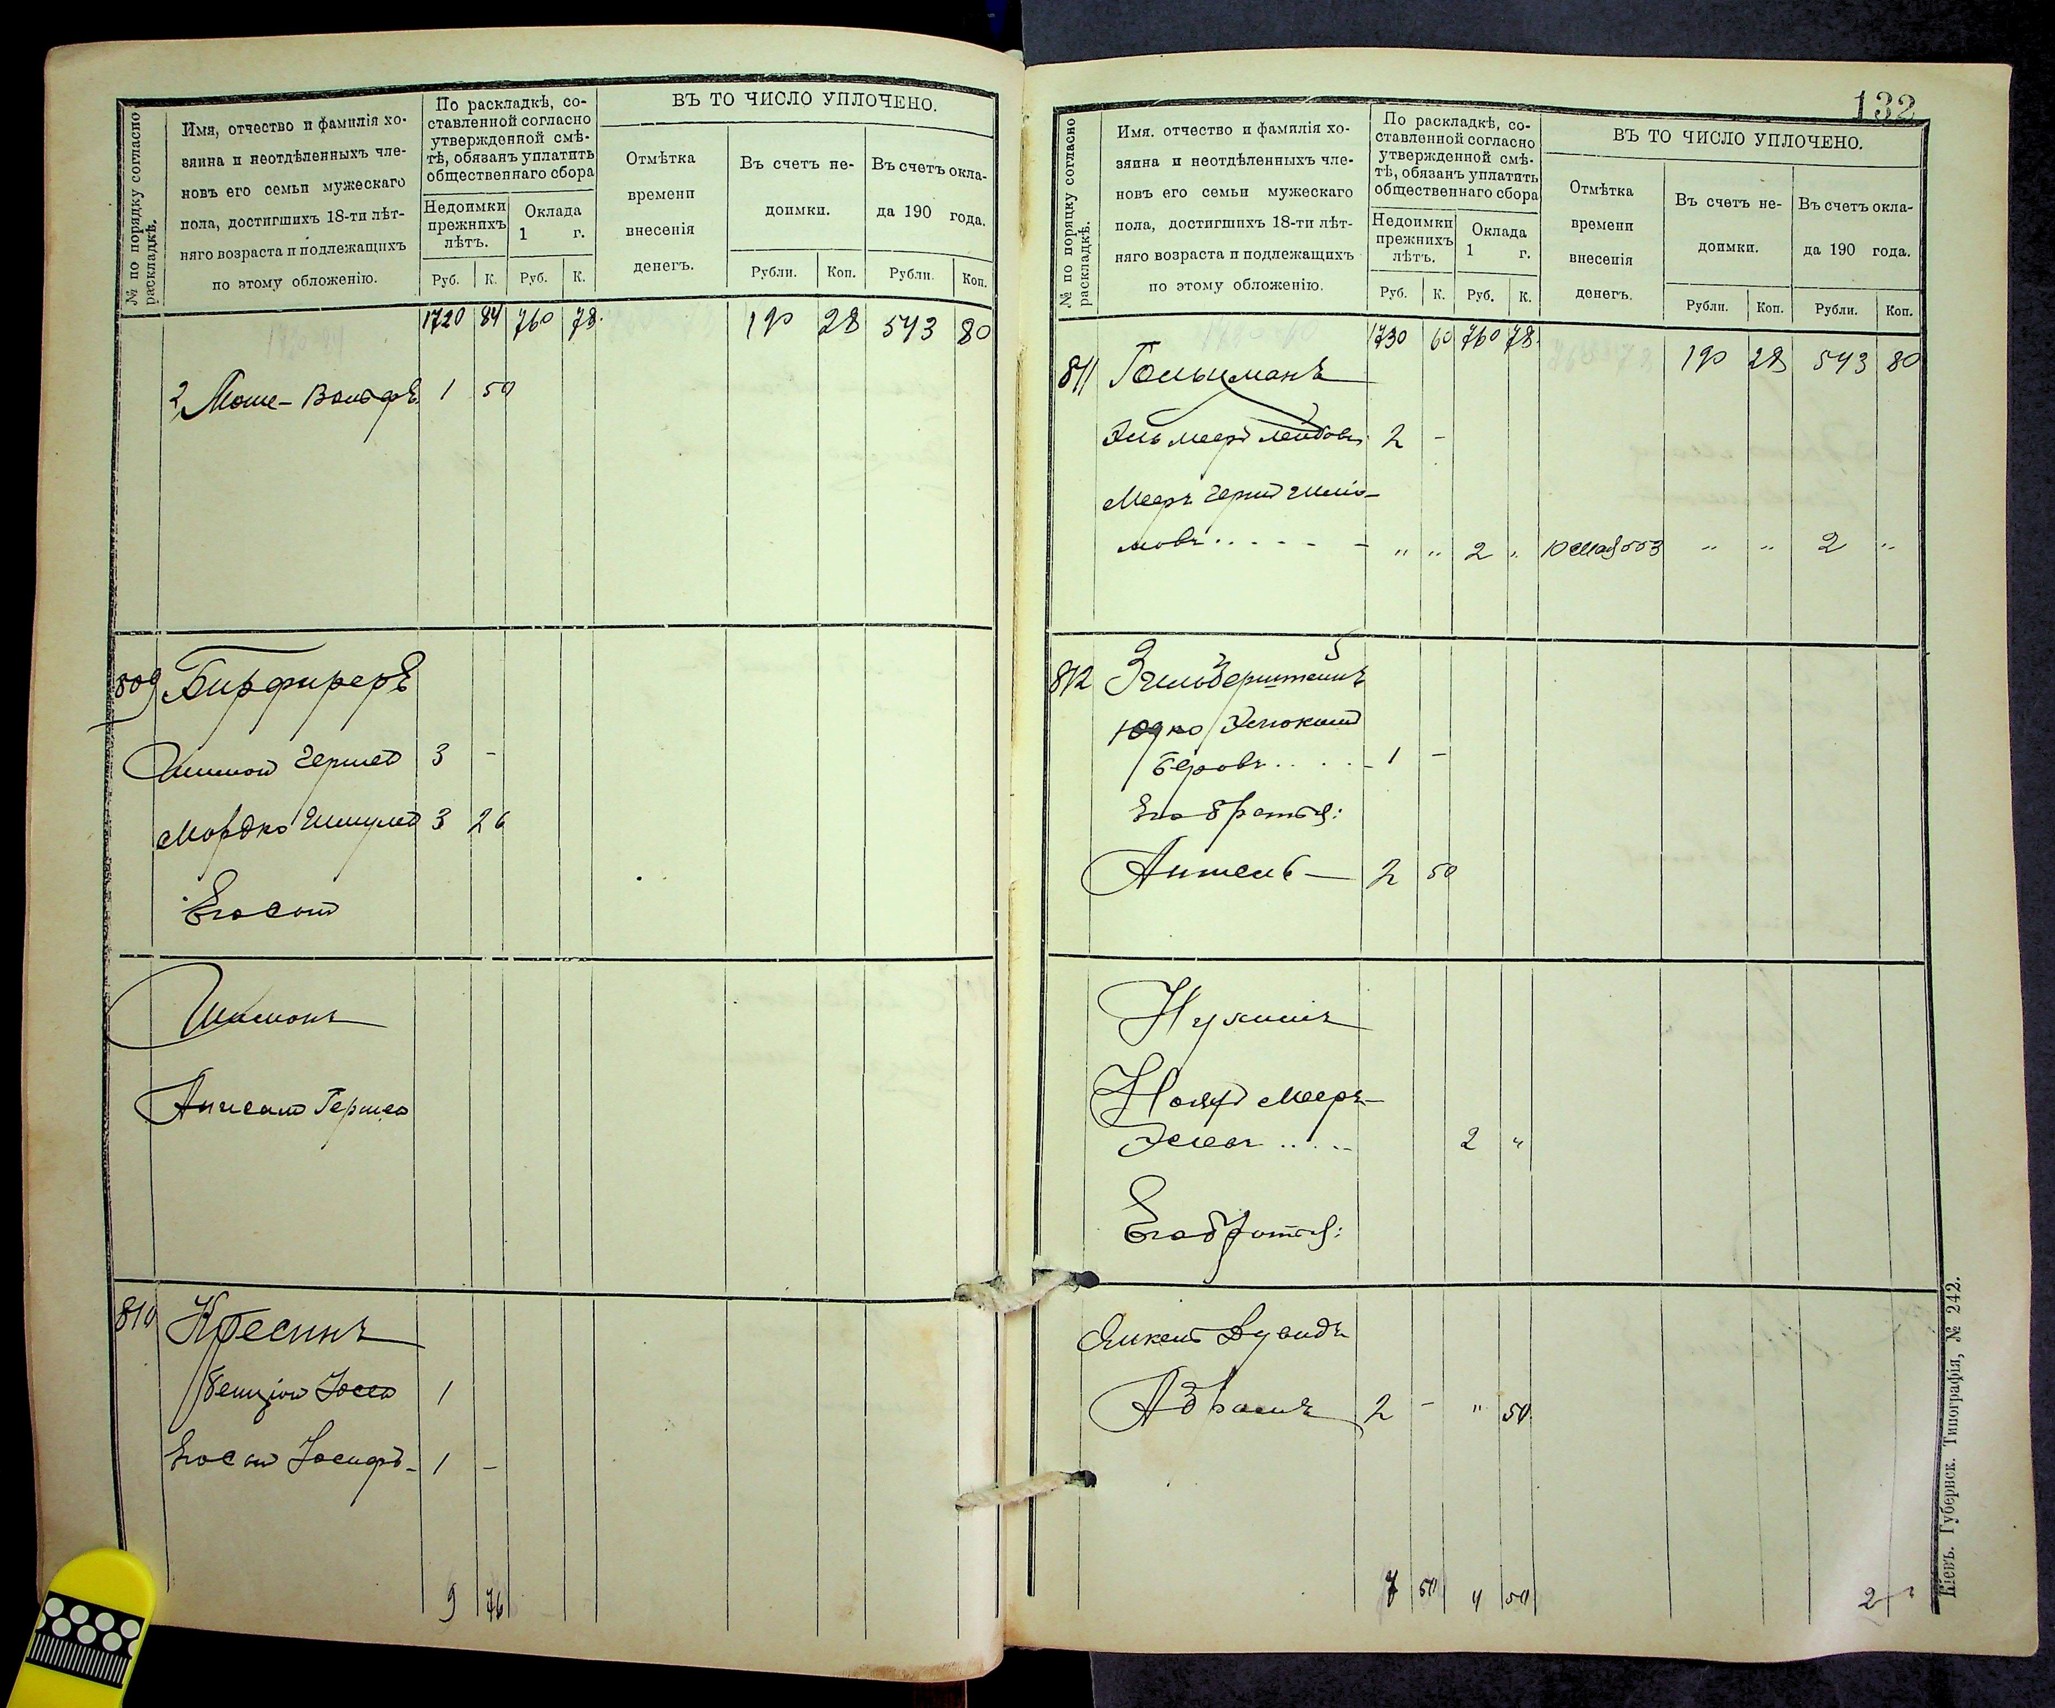 № по порядку согласно раскладкѣ.
Имя, отчество и фамилія хо-
зяина и неотдѣленныхъ чле-
новъ его семьи мужескаго
пола, достигшихъ 18-ти лѣт-
няго возраста и подлежащихъ
по этому обложенію.
По раскладкѣ, со-
ставленной согласно
утвержденной смѣ-
тѣ, обязанъ уплатить
общественнаго сбора
Недоимки прежнихъ лѣтъ.
Оклада 1 г.
Руб. К. Руб. К.
ВЪ ТО ЧИСЛО УПЛОЧЕНО.
Отмѣтка
времени
внесенія
денегъ.
Въ счетъ не-
доимки.
Въ счетъ окла-
да 190 года.
Рубли. Коп. Рубли. Коп.
1720 84 760 78 190 28 543 80
2 Моше-Вольфъ 1 50
809 Бирфиреръ
3 -
Мордко 3 26
Его сын
Шимонъ
810
1
Его сын Іосифъ - 1 -
9 76
132
№ по порядку согласно раскладкѣ.
Имя. отчество и фамилія хо-
зяина и неотдѣленныхъ чле-
новъ его семьи мужескаго
пола, достигшихъ 18-ти лѣт-
няго возраста и подлежащихъ
по этому обложенію.
По раскладкѣ, со-
ставленной согласно
утвержденной смѣ-
тѣ, обязанъ уплатить
общественнаго сбора
Недоимки прежнихъ лѣтъ.
Оклада 1 г.
Руб. К. Руб. К.
ВЪ ТО ЧИСЛО УПЛОЧЕНО.
Отмѣтка
времени
внесенія
денегъ.
Въ счетъ не-
доимки.
Въ счетъ окла-
да 190 года.
Рубли. Коп. Рубли. Коп.
1730 60 760 78 190 28 543 80
811 Гольцманъ
2 -
Мееръ
мовъ . . . . - " " 2 " " " 2 "
812 Зильберштейнъ
Юдко
Беровъ . . . - 1 -
Его братья:
Аншель - 2 50
Нухимъ
Мееръ-
2 "
Его братья:
Дувидъ
Абрамъ 2 - " 50
7 50 4 50 2
Кіевъ. Губернск. Типографія, № 242.